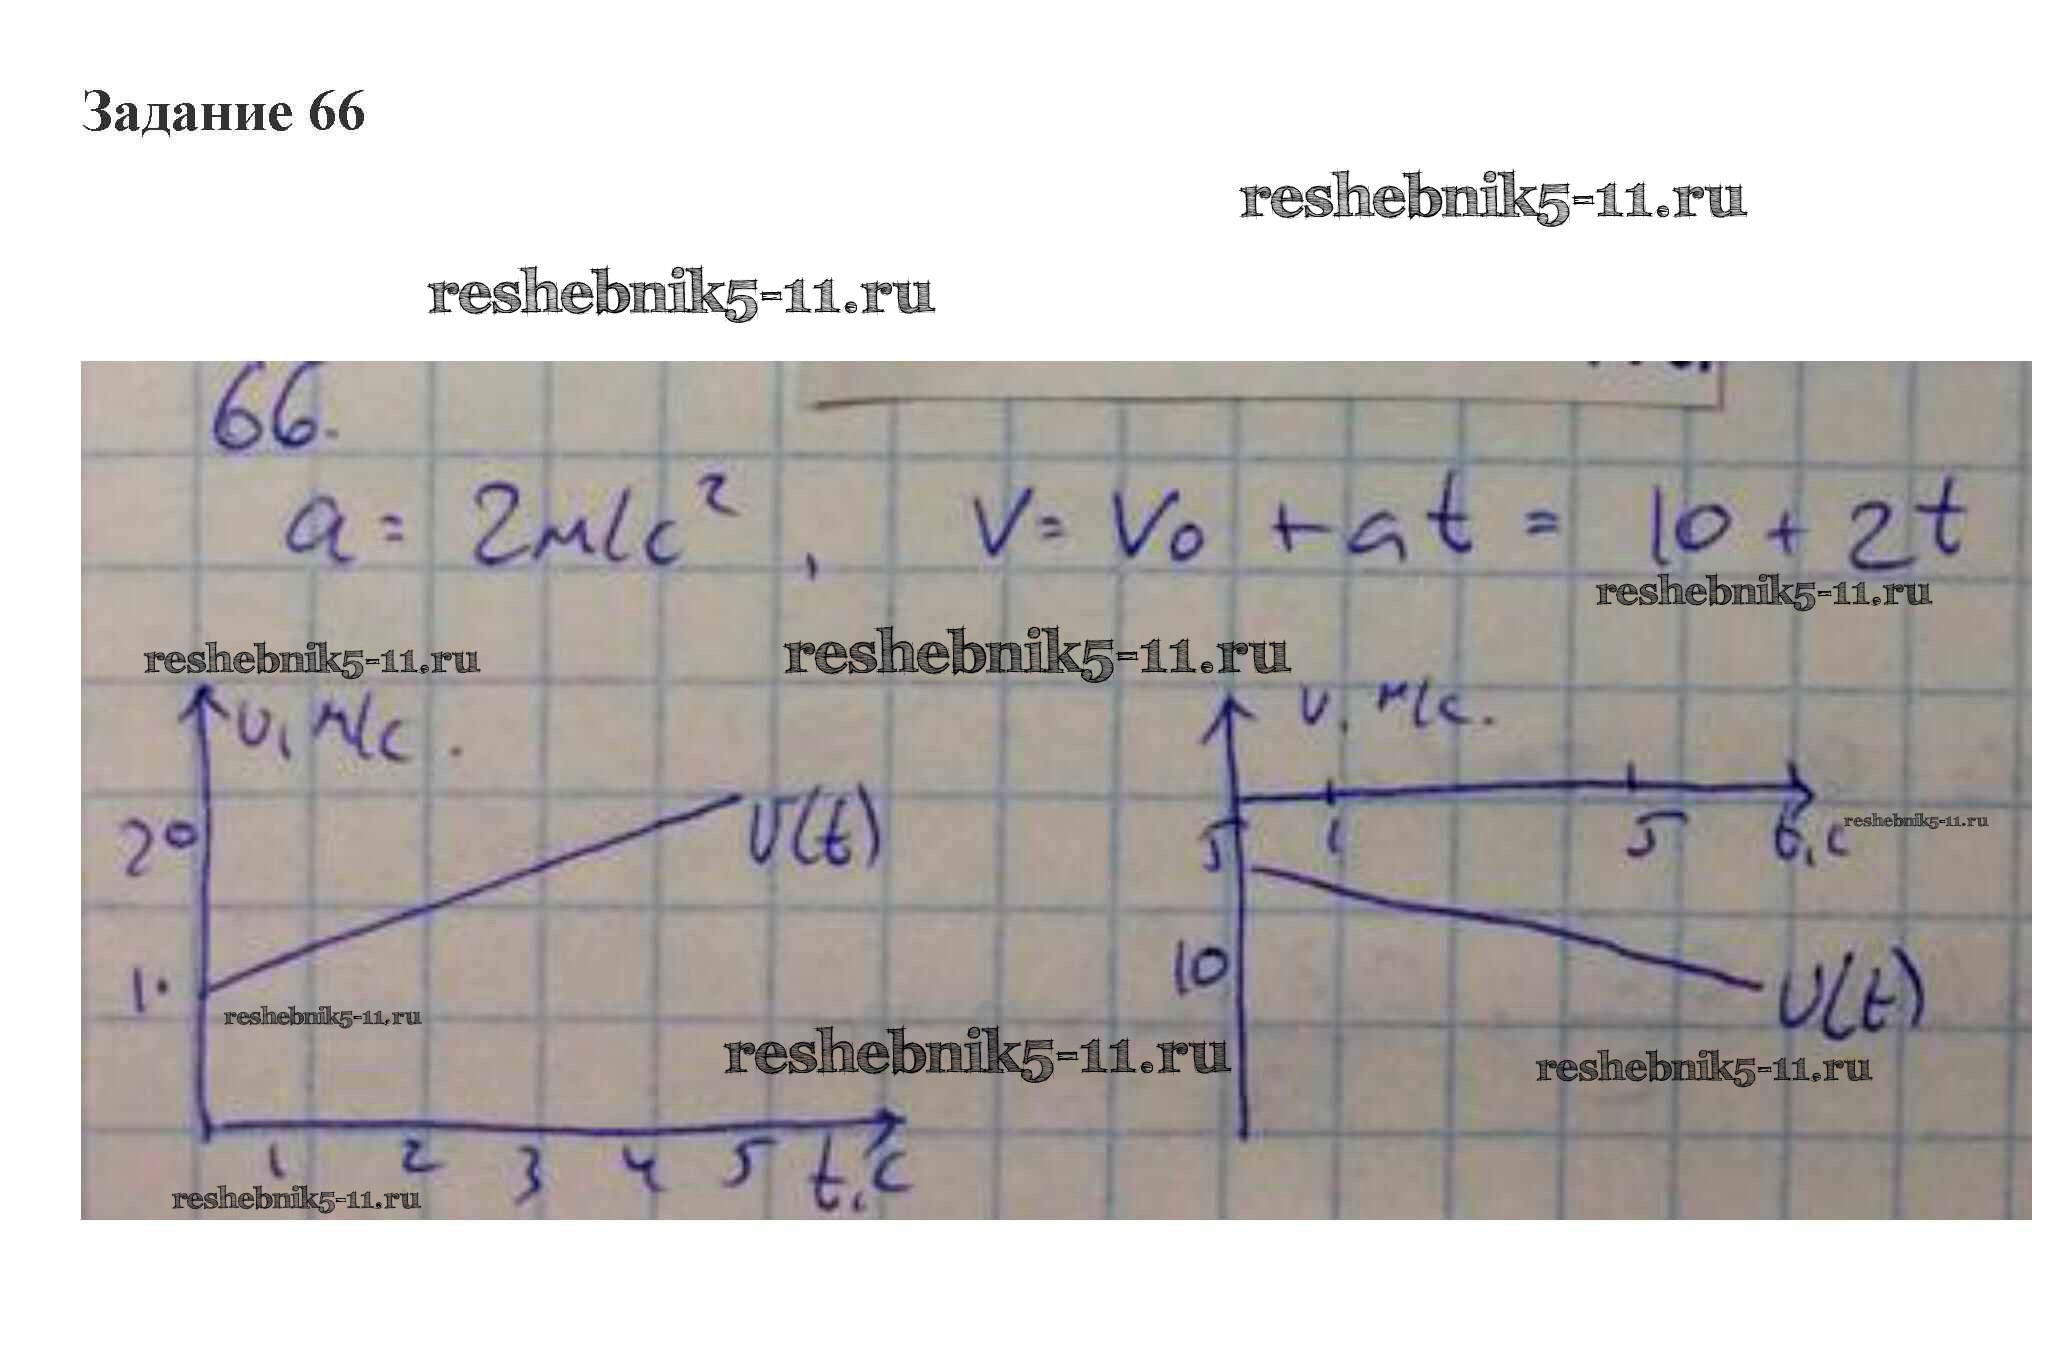 Задание 66
reshebnik5-11.ru
reshebnik5-11.ru
66.
a = 2м/с² , V = V₀ + at = 10 + 2t
reshebnik5-11.ru
reshebnik5-11.ru
reshebnik5-11.ru
υ, м/с.
υ, м/с.
20
υ(t)
5
1
5
t, c
reshebnik5-11.ru
10
υ(t)
10
reshebnik5-11.ru
reshebnik5-11.ru
reshebnik5-11.ru
1 2 3 4 5 t, c
reshebnik5-11.ru